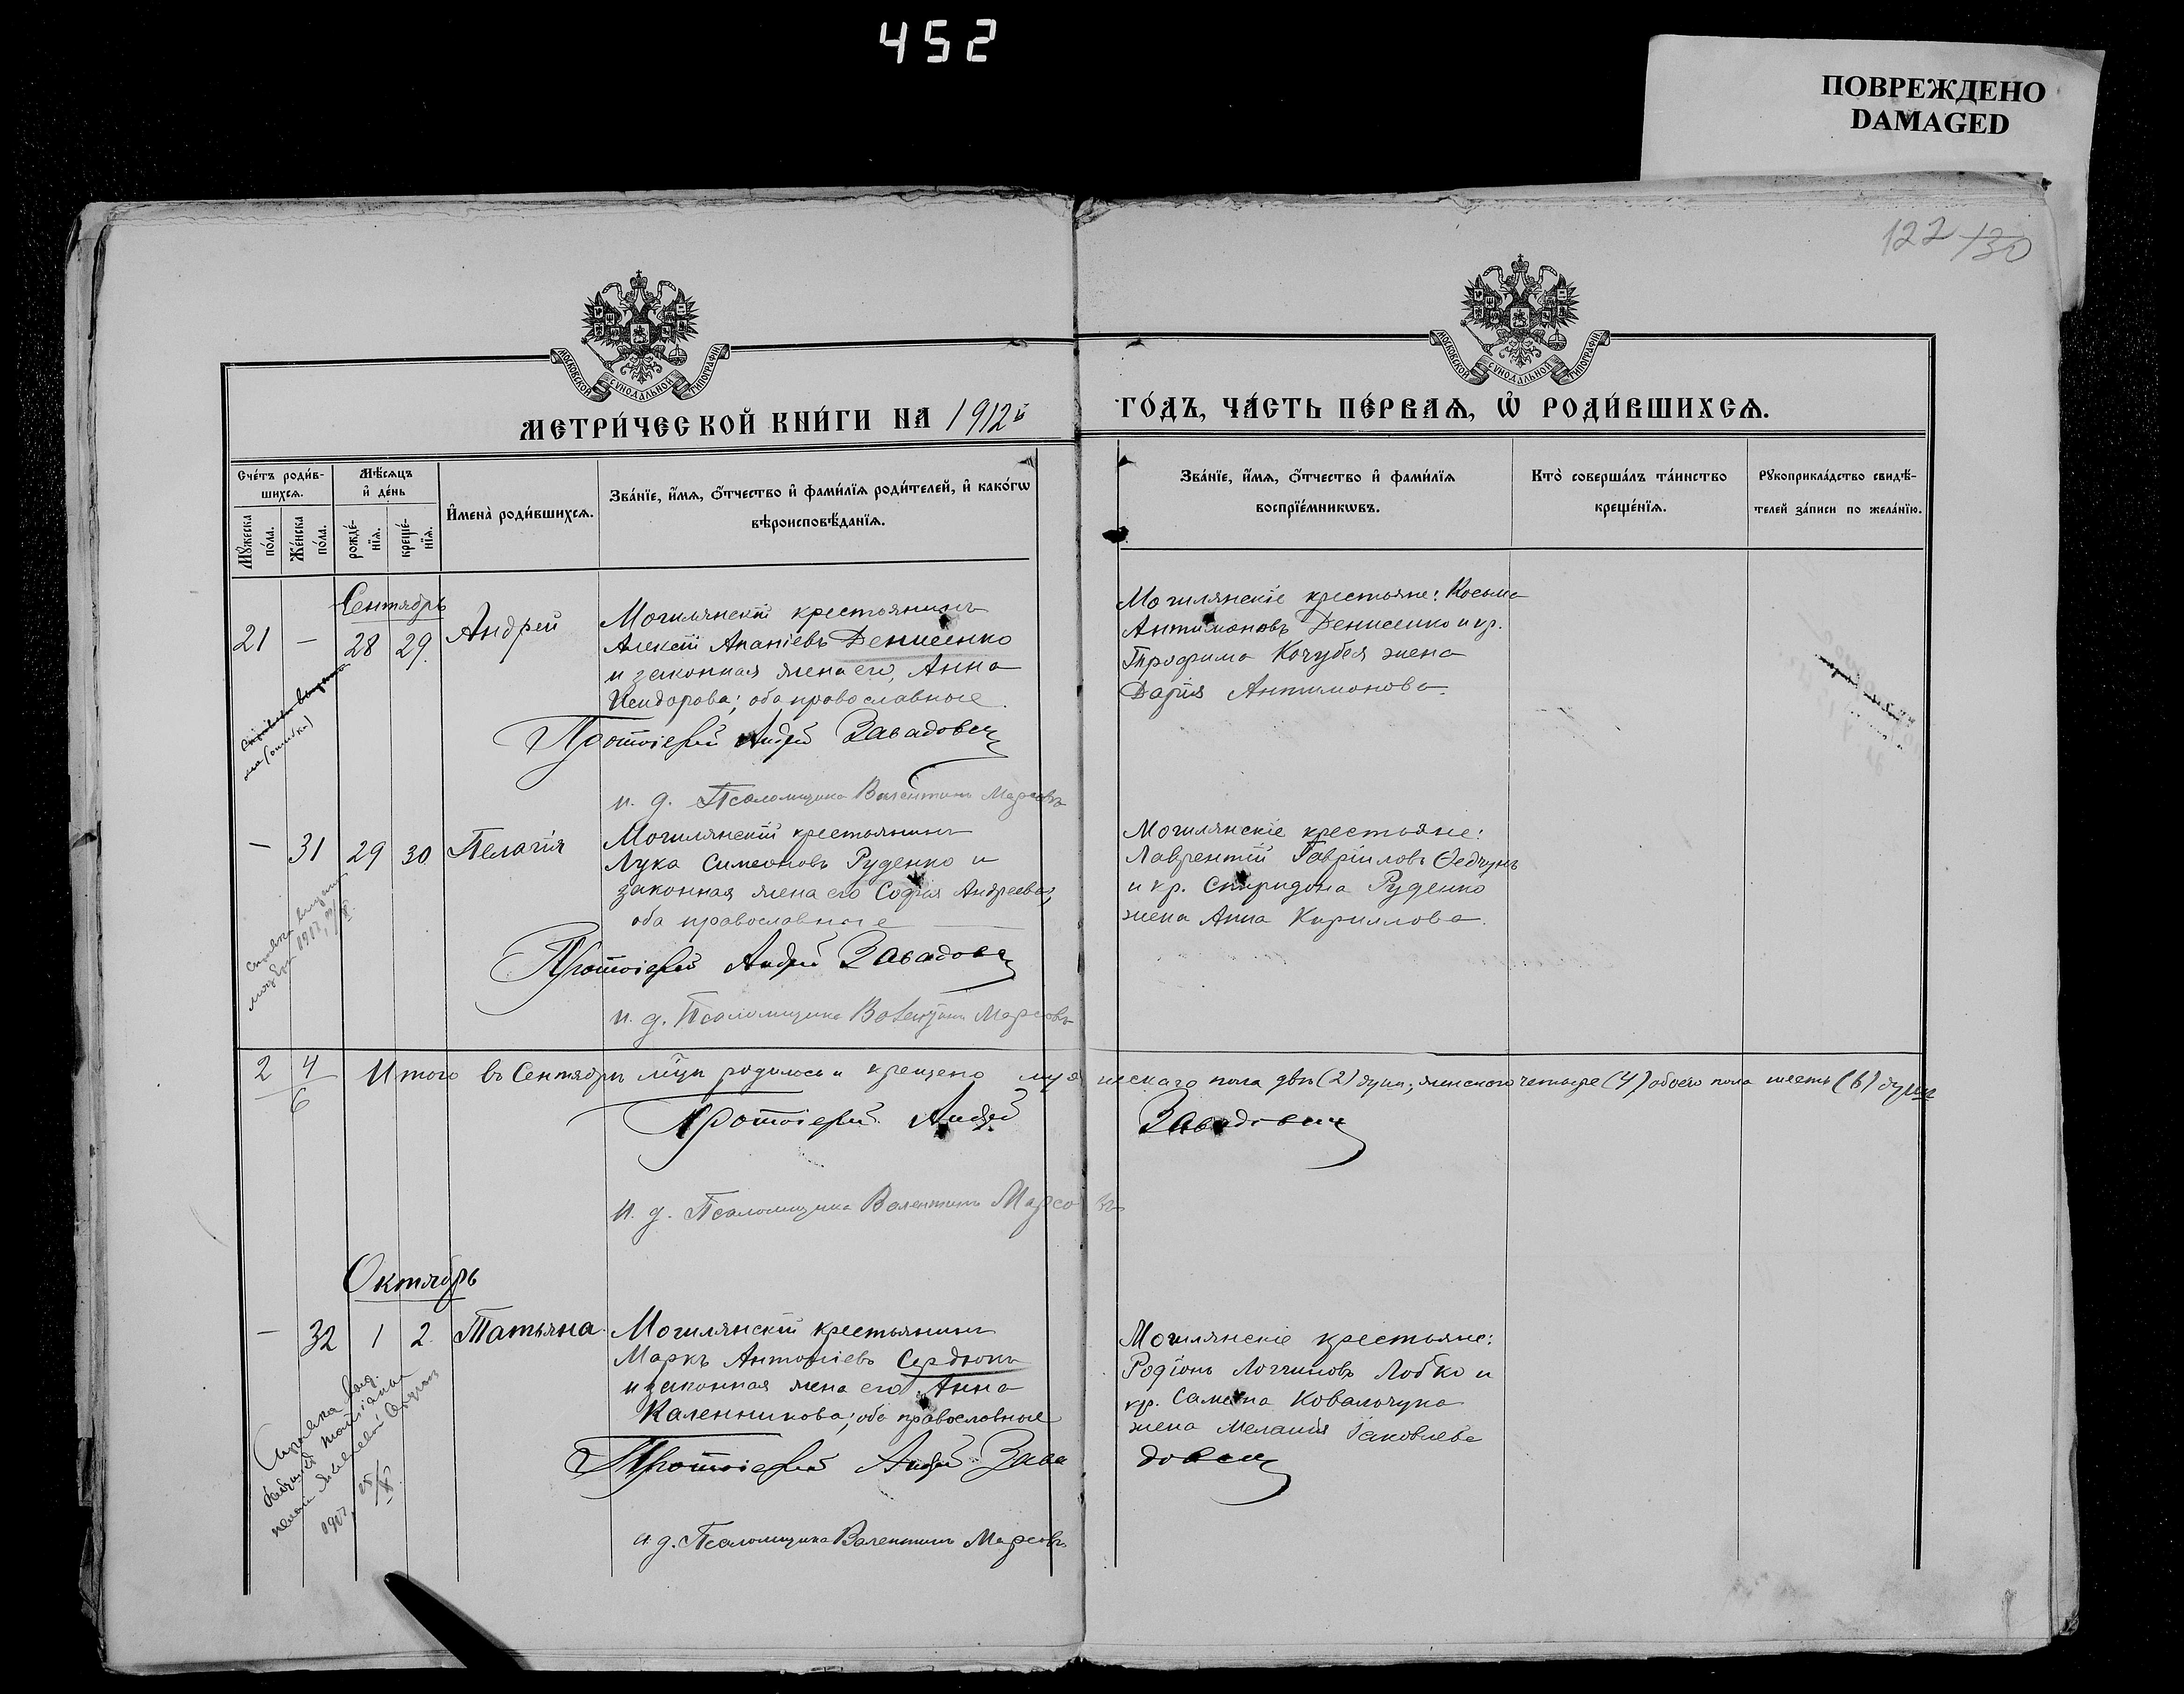 452
ПОВРЕЖДЕНО
DAMAGED
122 130
МОСКОВСКОЙ СѴНОДАЛЬНОЙ ТИПОГРАФІИ
МОСКОВСКОЙ СѴНОДАЛЬНОЙ ТИПОГРАФІИ
МЕТРИ́ЧЕСКОЙ КНИ́ГИ НА 1912й
ГО́ДЪ, ЧА́СТЬ ПЕ́РВАѦ, Ѡ҆ РОДИ́ВШИХСѦ.
Сче́тъ роди́в-
шихсѧ.
Мꙋ́жеска по́ла.
Же́нска по́ла.
Мѣ́сѧцъ
и҆ де́нь
рожде́-
нїѧ.
креще́-
нїѧ.
И҆мена̀ роди́вшихсѧ.
Зва́нїе, и҆́мѧ, ѻ҆́тчество и҆ фами́лїѧ роди́телей, и҆ како́гѡ
вѣроисповѣ́данїѧ.
Зва́нїе, и҆́мѧ, ѻ҆́тчество и҆ фами́лїѧ
воспрїе́мникѡвъ.
Кто̀ соверша́лъ та́инство
креще́нїѧ.
Рꙋкоприкла́дство свидѣ́-
телей за́писи по жела́нїю.
Сентябрь
21 — 28 29. Андрей
Могилянскій крестьянинъ
Алексій Ананіевъ Денисенко
и законная жена его, Анна
Исидорова; оба православные.
Протоіерей Андрей Завадович
и. д. Псаломщика Валентинъ Марсовъ
Могилянскіе крестьяне: Косьма
Антимоновъ Денисенко и кр.
Трофима Кочубея жена
Дарія Антимонова.
— 31 29 30 Пелагія
Могилянскій крестьянинъ
Лука Симеоновъ Руденко и
законная жена его София Андреева;
оба православные
Протоіерей Андрей Завадович
и. д. Псаломщика Валентинъ Марсовъ
Могилянскіе крестьяне:
Лаврентій Гавріиловъ Ѳедчунъ
и кр. Спиридона Руденко
жена Анна Кириллова.
2 4
6
Итого въ Сентябрѣ м-цѣ родилось и крещено мужескаго пола двѣ (2) души; женскаго четыре (4) обоего пола шесть (6) душъ
Протоіерей Андрей Завадович
и. д. Псаломщика Валентинъ Марсовъ
Октябрь
— 32 1 2 Татьяна
Могилянскій крестьянинъ
Маркъ Антоніевъ Сердюкъ
и законная жена его Анна
Каленникова; оба православные
Протоіерей Андрей Завадович
и. д. Псаломщика Валентинъ Марсовъ
Могилянскіе крестьяне:
Родіонъ Логгиновъ Лобко и
кр. Самсона Ковальчука
жена Меланія Іаковлева